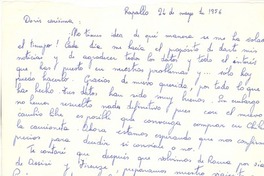 Rapallo 26 de mayo de 1956
Doris carísima:
No tiene idea de qué manera se me ha volado
el tiempo! Cada día me hacía el propósito de darte mis
noticias y de agradecer todos los datos y todo el interés
que has puesto en nuestros problemas y... sólo hoy
puedo hacerlo. Gracias de nuevo querida, por todo lo que
has hecho. Tus datos han sido muy buenos. Sin embargo
no hemos resuelto nada definitivo; pues con el nuevo
cambio es posible que convenga comprar en Chile
la camioneta. Ahora estamos esperando que nos confirmen
precios para decidir si conviene o no.
Te contaré que después que volvimos de Roma
de Assisi y Firenze